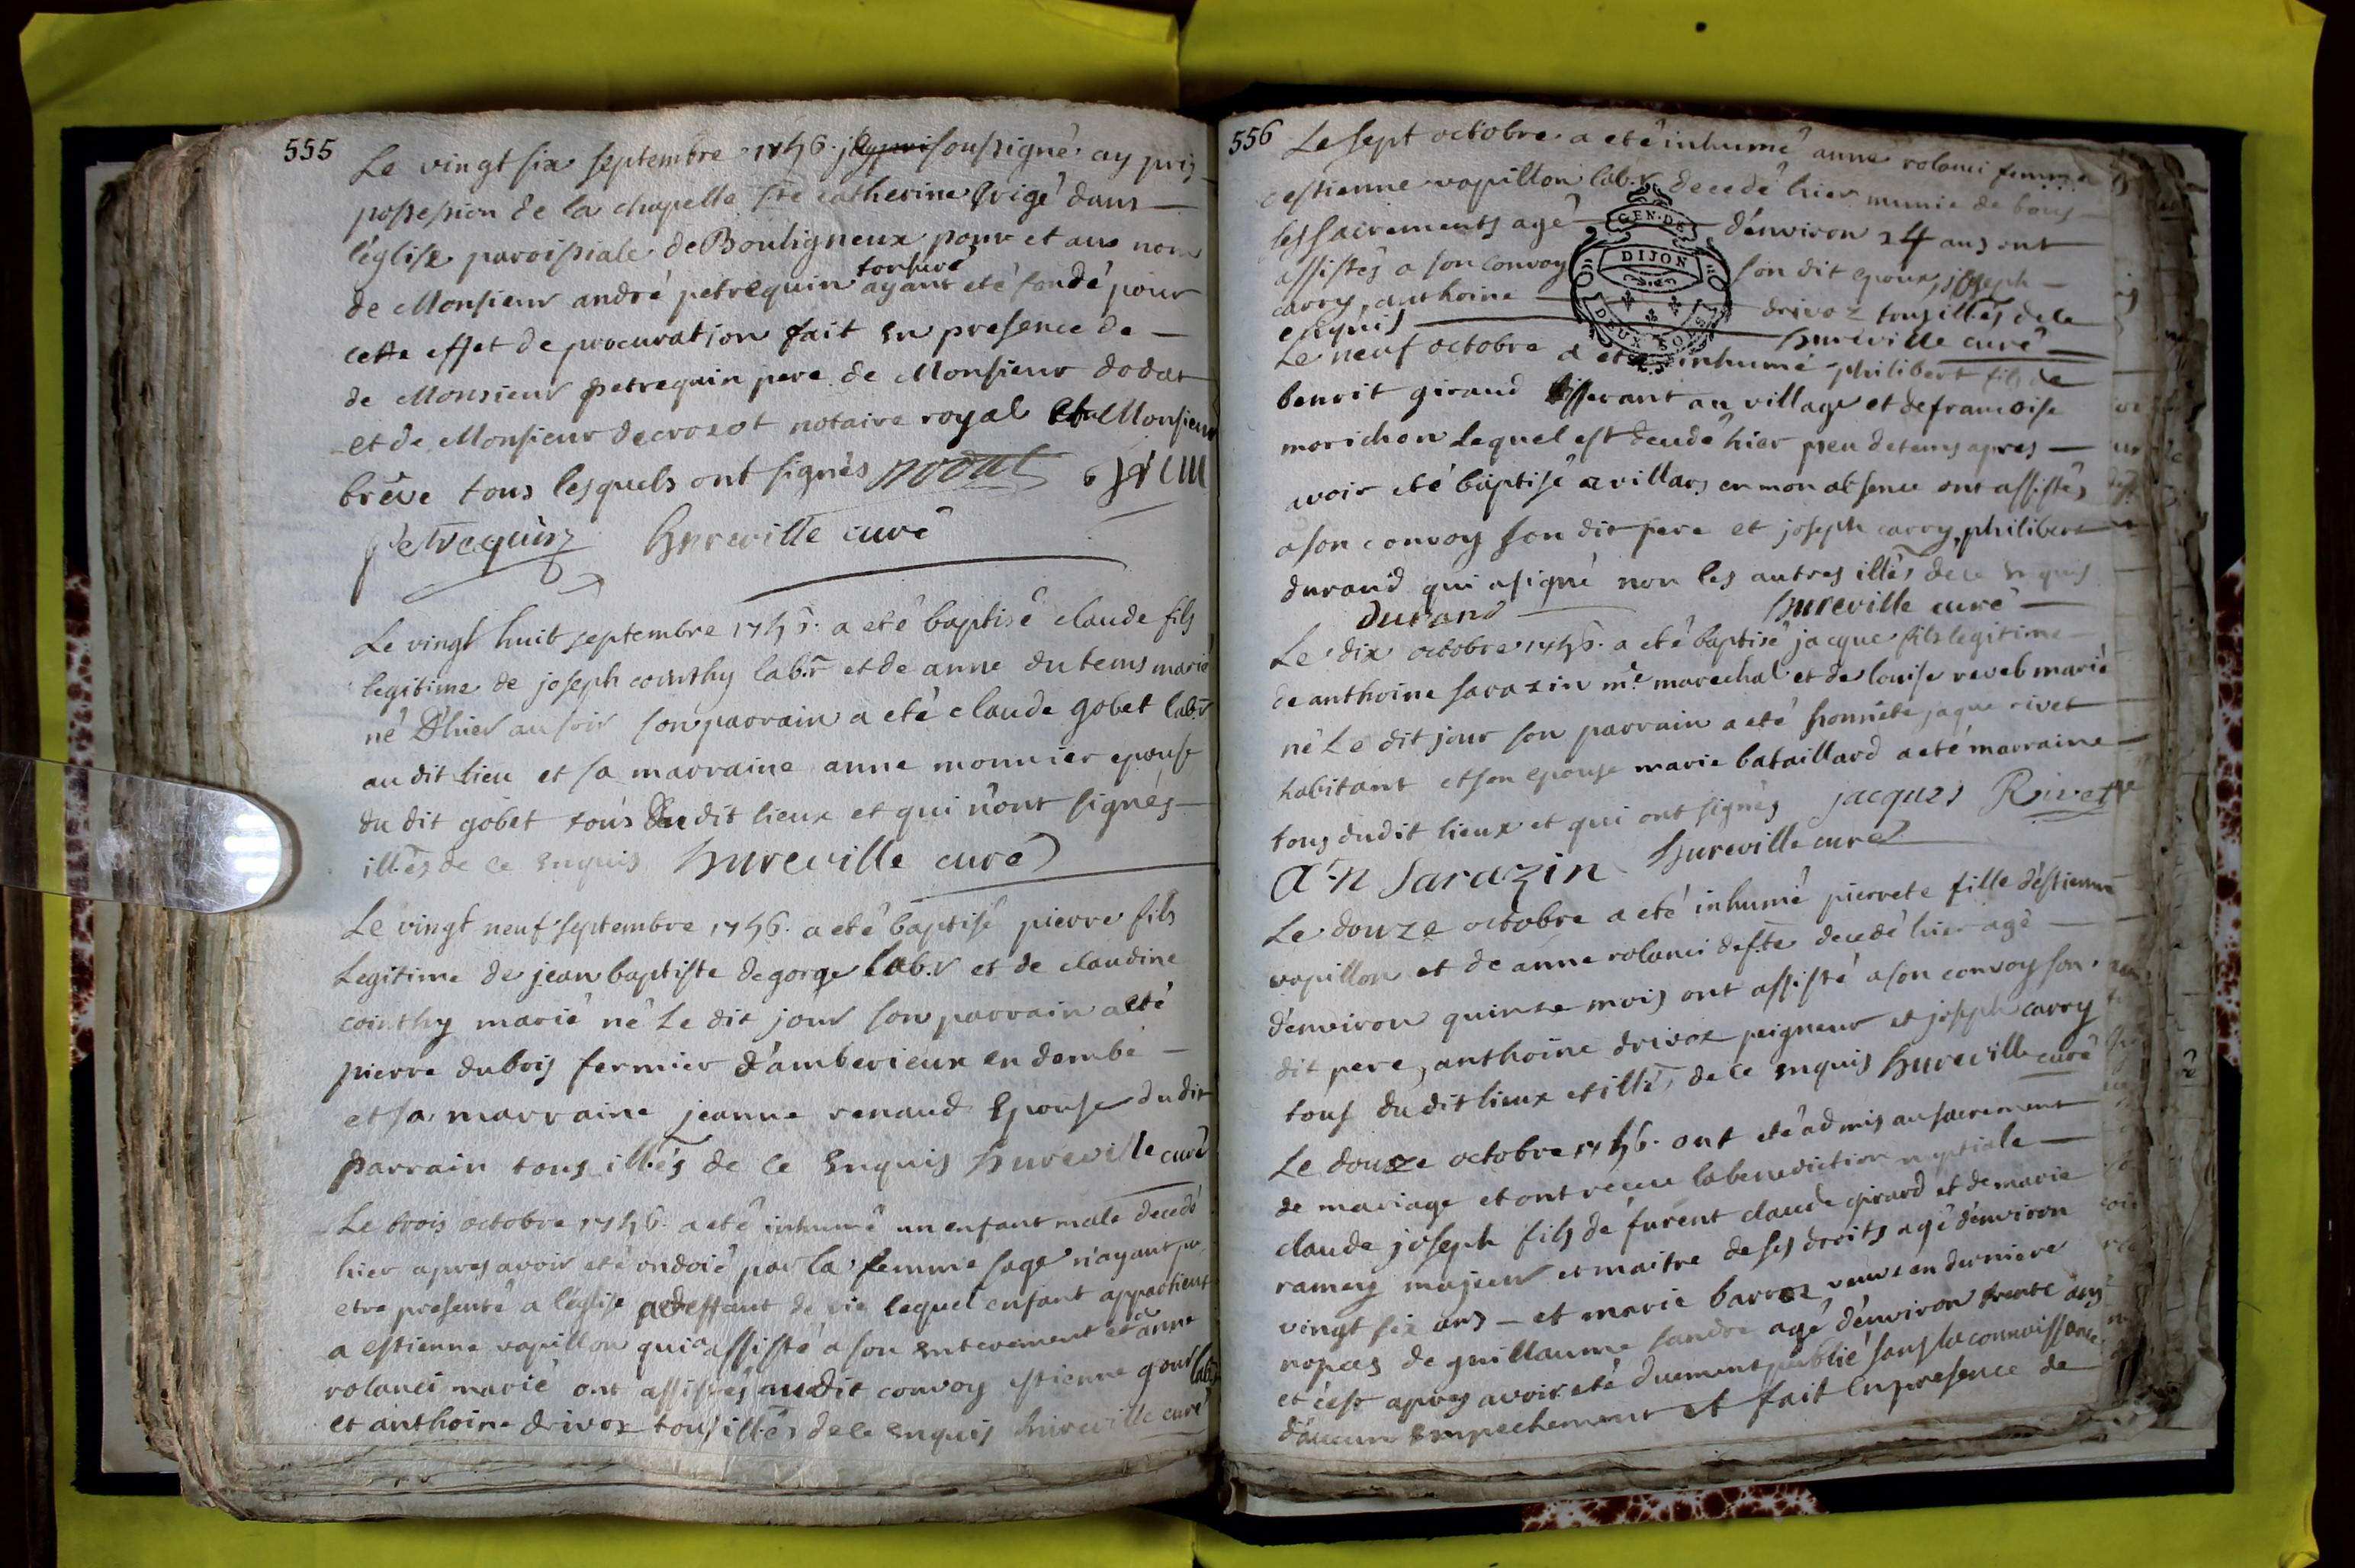 555
Le vingt six septembre 1756. je soussigné ay pris
possession de la chapelle Ste catherine erigé dans
l'église paroissiale de Bouligneux pour et au nom
de Monsieur andré petrequin tonsuré ayant eté fondé pour
cette effet de procuration fait en presence de
de Monsieur petrequin pere de Monsieur dodat
et de Monsieur decrozot notaire royal et Monsieur
brêve tous lesquels ont signés
Petrequin hureville curé
Le vingt huit septembre 1756. a eté baptisé claude fils
legitime de joseph cointhy lab.r et de anne du tems marié
né D'hier au soir son parrain a eté claude gobet lab.r
au dit lieu et sa marraine anne monnier epouse
du dit gobet tous du dit lieux et qui n'ont signés
illés de ce enquis hureville curé
Le vingt neuf septembre 1756. a eté baptisé pierre fils
Legitime de jean baptiste degorge lab.r et de claudine
cointhy marié né Le dit jour son parrain a eté
pierre dubois fermier d'amberieux en dombe
et sa marraine jeanne renaud Epouse du dit
parrain tous illés de ce enquis hureville curé
Le trois octobre 1756. a eté inhumé un enfant male decedé
hier apres avoir eté ondoié par la femme sage n'ayant pu
etre presenté a l'église deffaut de vie lequel enfant appartient
a estienne vapillon qui a assisté a son enterement et anne
rolanci marié ont assistés audit convoy estienne gour lab.r
et anthoine drivox tous illés de ce enquis hureville curé
556
Le sept octobre a eté inhumé anne rolanci femme
estienne vapillon lab.r decedé hier munie de tous
les sacrements agé d'environ 24 ans ont
assistés a son convoy son dit epoux, joseph
carry, anthoine drivoz tous illés de ce
enquis hureville curé
Le neuf octobre a eté inhumé philibert fils de
benoit giraud au village et de francoise
morichon Lequel est decedé hier peu de tems apres
avoir eté baptisé a villars en mon absence ont assistés
a son convoy son dit pere et joseph carry, philibert
durand qui a signé non les autres illés de ce enquis
durand hureville curé
Le dix octobre 1756. a eté baptisé jacque fils legitime
de anthoine sarazin m.e marechal et de louise reveb marié
né Le dit jour son parrain a eté honnéte jaque rivet
habitant et son epouse marie bataillard a eté marraine
tous du dit lieux et qui ont signés jacques Rivet
A·n Sarazin hureville curé
Le douze octobre a eté inhumé pierrete fille d'estienne
vapillon et de anne rolanci defte decedé hier agé
d'environ quinze mois ont assisté a son convoy son
dit pere, anthoine drivox peigneur et joseph carry
tous du dit lieux et illés de ce enquis hureville curé
Le douze octobre 1756. ont eté admis au sacrement
de mariage et ont receu la benediction nuptiale
claude joseph fils de furent claude girard et de marie
ramey majeur et maitre de ses droits agé d'environ
vingt six ans — et marie barroz veuve en derniere
nopces de guillaume sandre agé d'environ trente ans
et c'est apres avoir eté duement publié sans la connoissance
d'aucun empechement et fait en presence de
GEN·DE
DIJON
DEUX SOLS